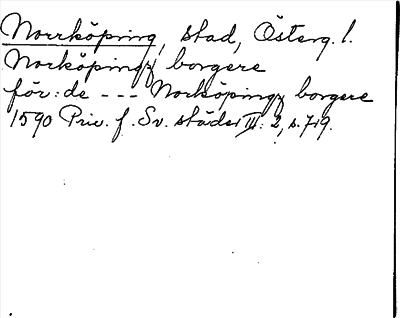 Norrköping, stad, Österg. l.
Norköpingz borgere
för: de --- Norköpingz borgere
1590 Priv. f. Sv. städer III: 2, s. 719.